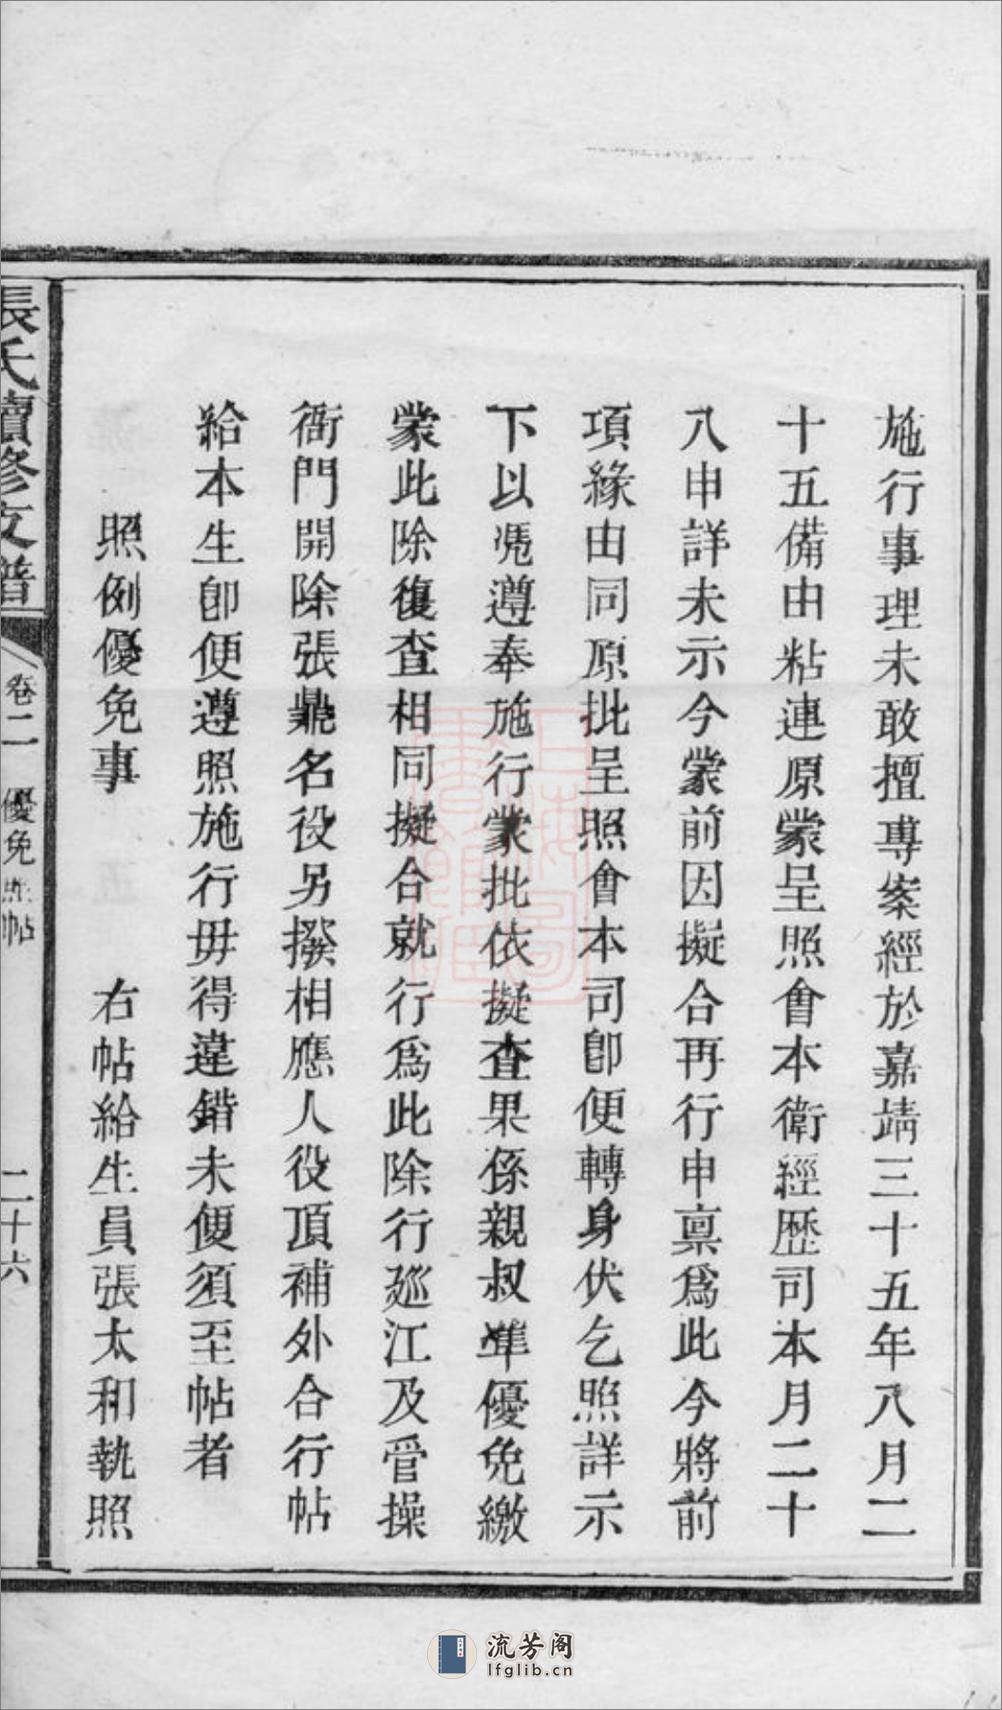 施行事理未敢擅專案經於嘉靖三十五年八月二
十五備由粘連原蒙呈照會本衛經歷司本月二十
八申詳未示今蒙前因擬合再行申稟爲此今將前
項緣由同原批呈照會本司卽便轉身伏乞照詳示
下以凴遵奉施行蒙批依擬查果係親叔準優免繳
蒙此除復查相同擬合就行爲此除行廵江及管操
衙門開除張鼎名役另撥相應人役頂補外合行帖
給本生卽便遵照施行毋得違錯未便須至帖者
照例優免事　右帖給生員張太和執照
張氏續修支譜　卷二　優免照帖　二十六
流芳阁
lfglib.cn